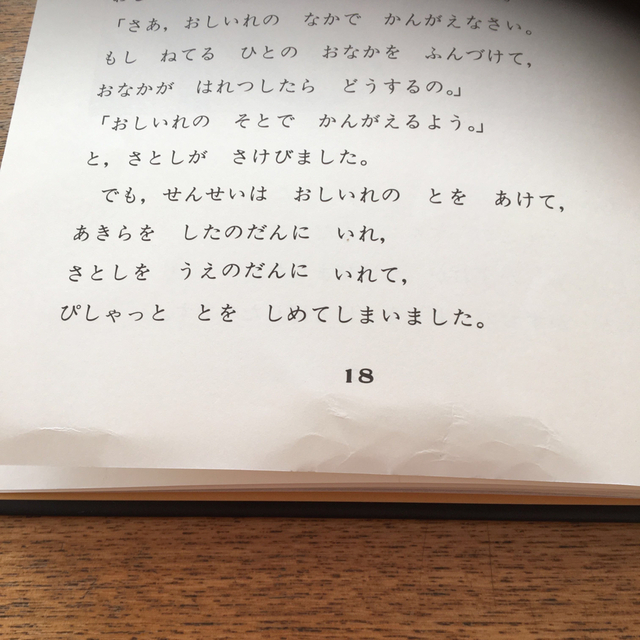 「さあ，おしいれの　なかで　かんがえなさい。
もし　ねてる　ひとの　おなかを　ふんづけて，
おなかが　はれつしたら　どうするの。」
「おしいれの　そとで　かんがえるよう。」
と，さとしが　さけびました。
でも，せんせいは　おしいれの　とを　あけて，
あきらを　したのだんに　いれ，
さとしを　うえのだんに　いれて，
ぴしゃっと　とを　しめてしまいました。
18